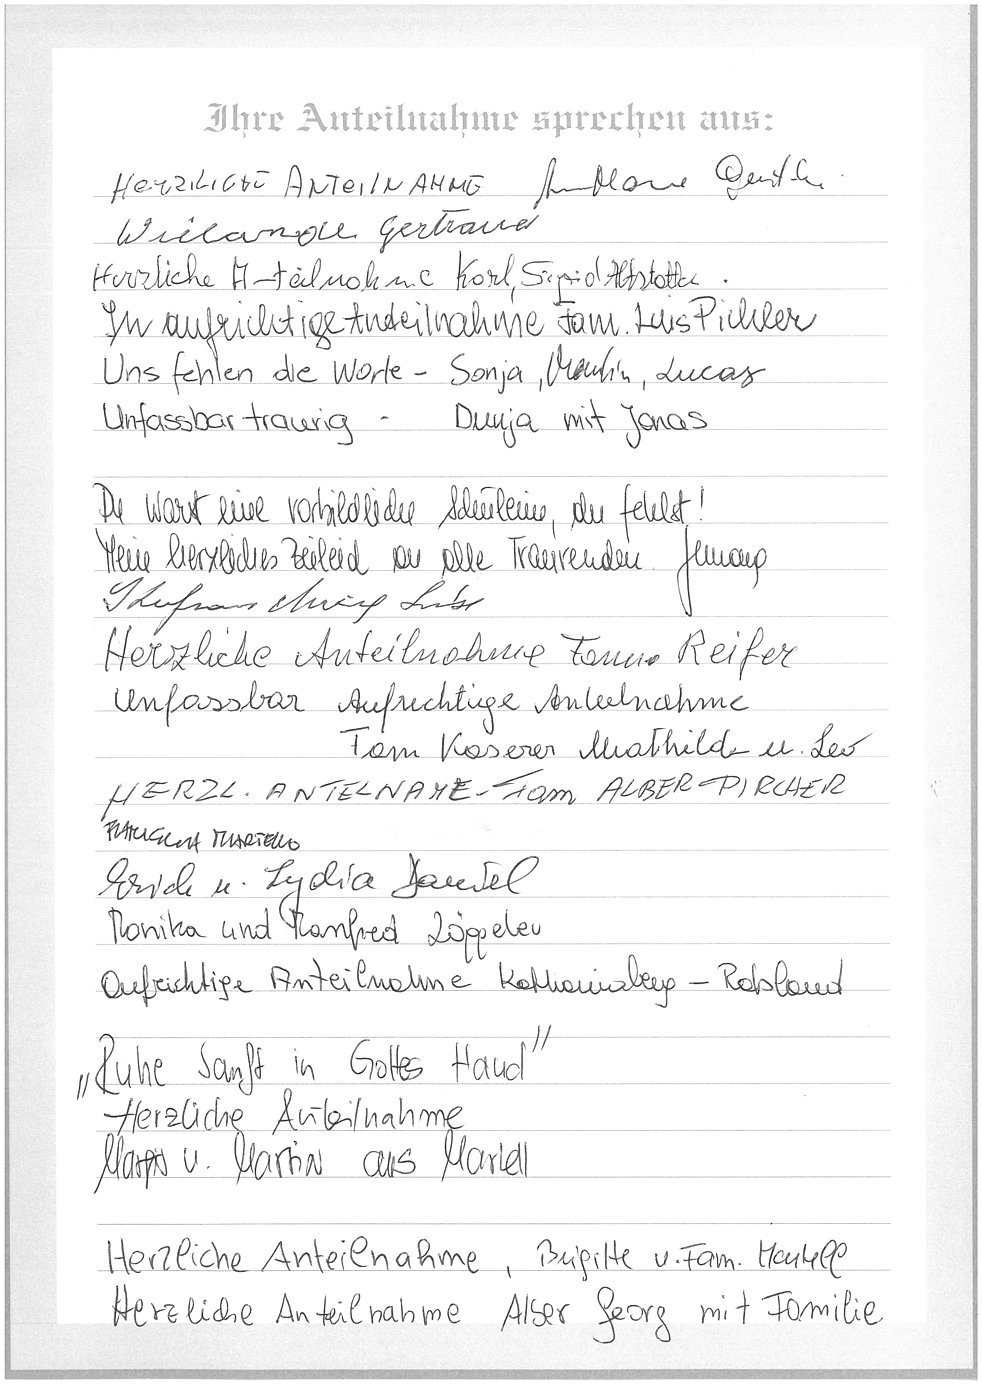 Ihre Anteilnahme sprechen aus:
HERZLICHE ANTEILNAHME
Wielander Gertraud
Herzliche Anteilnahme Karl, Sigrid
In aufrichtige Anteilnahme Fam. Luis Pichler
Uns fehlen die Worte - Sonja, Martin, Lucas
Unfassbar traurig - Dunja mit Jonas
Du warst eine vorbildliche Schülerin, du fehlst!
Mein herzliches Beileid an alle Trauernden.
Herzliche Anteilnahme Reifer
Unfassbar Aufrichtige Anteilnahme
Fam Kaserer Mathilde u. Leo
HERZL. ANTELNAME - Fam ALBER-PIRCHER
MARTELLO
Erich u. Lydia
Monika und Manfred
Aufrichtige Anteilnahme Katharinaberg - Rabland
"Ruhe Sanft in Gottes Hand"
Herzliche Anteilnahme
u. Martin aus Martell
Herzliche Anteilnahme, Brigitte u. Fam. Martell
Herzliche Anteilnahme Alber Georg mit Familie